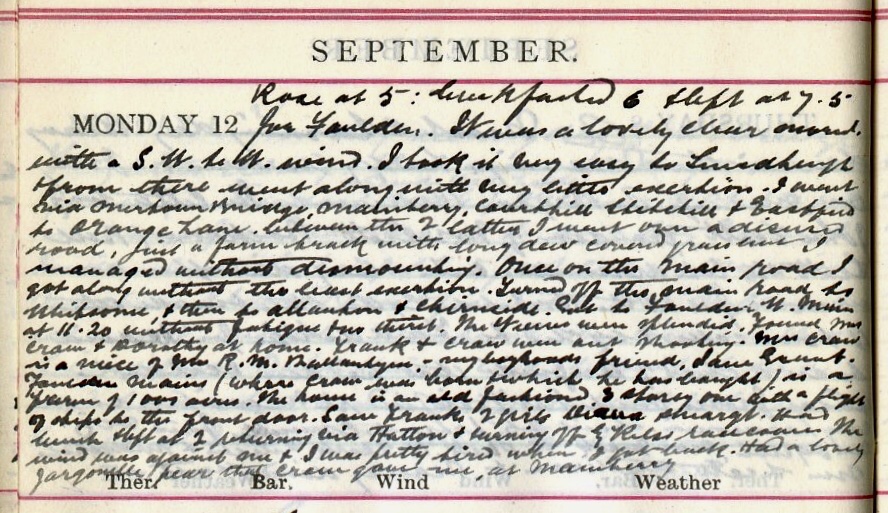 SEPTEMBER.
Rose at 5: breakfasted 6 & left at 7.5
MONDAY 12 for Foulden. It was a lovely clear morn.
with a S.W. to W. wind. I took it very easy to
& from there went along with very little exertion. I went
via Bridge, & Eastfield
to Orange Lane. between the 2 latter I went over a disused
road, just a farm track with long dew covered grass but I
managed without dismounting. Once on the main road I
got along without the least exertion. Turned off the main road to
Whitsome, & then to Allanton & Chirnside. Got to Foulden W. Mains
at 11.20 without fatigue & no thirst. The views were splendid. Found Mrs
Craw & Dorothy at home. Frank & Craw were out shooting. Mrs Craw
is a niece of Mrs R. M. Ballantyne, - my boyhoods friend, Jane Grant.
Foulden Mains (where Craw was born & which he has bought) is a
Farm of 1000 acres. The house is an old fashioned 3 storey one with a flight
of steps to the front door. Saw Franks 2 girls Diana & Margt. Had
lunch & left at 2 returning via Hutton & turning off by Kelso race course. The
wind was against me & I was pretty tired when I got back. Had a lovely
Jargonelle pear that Craw gave me at
Ther. Bar. Wind Weather